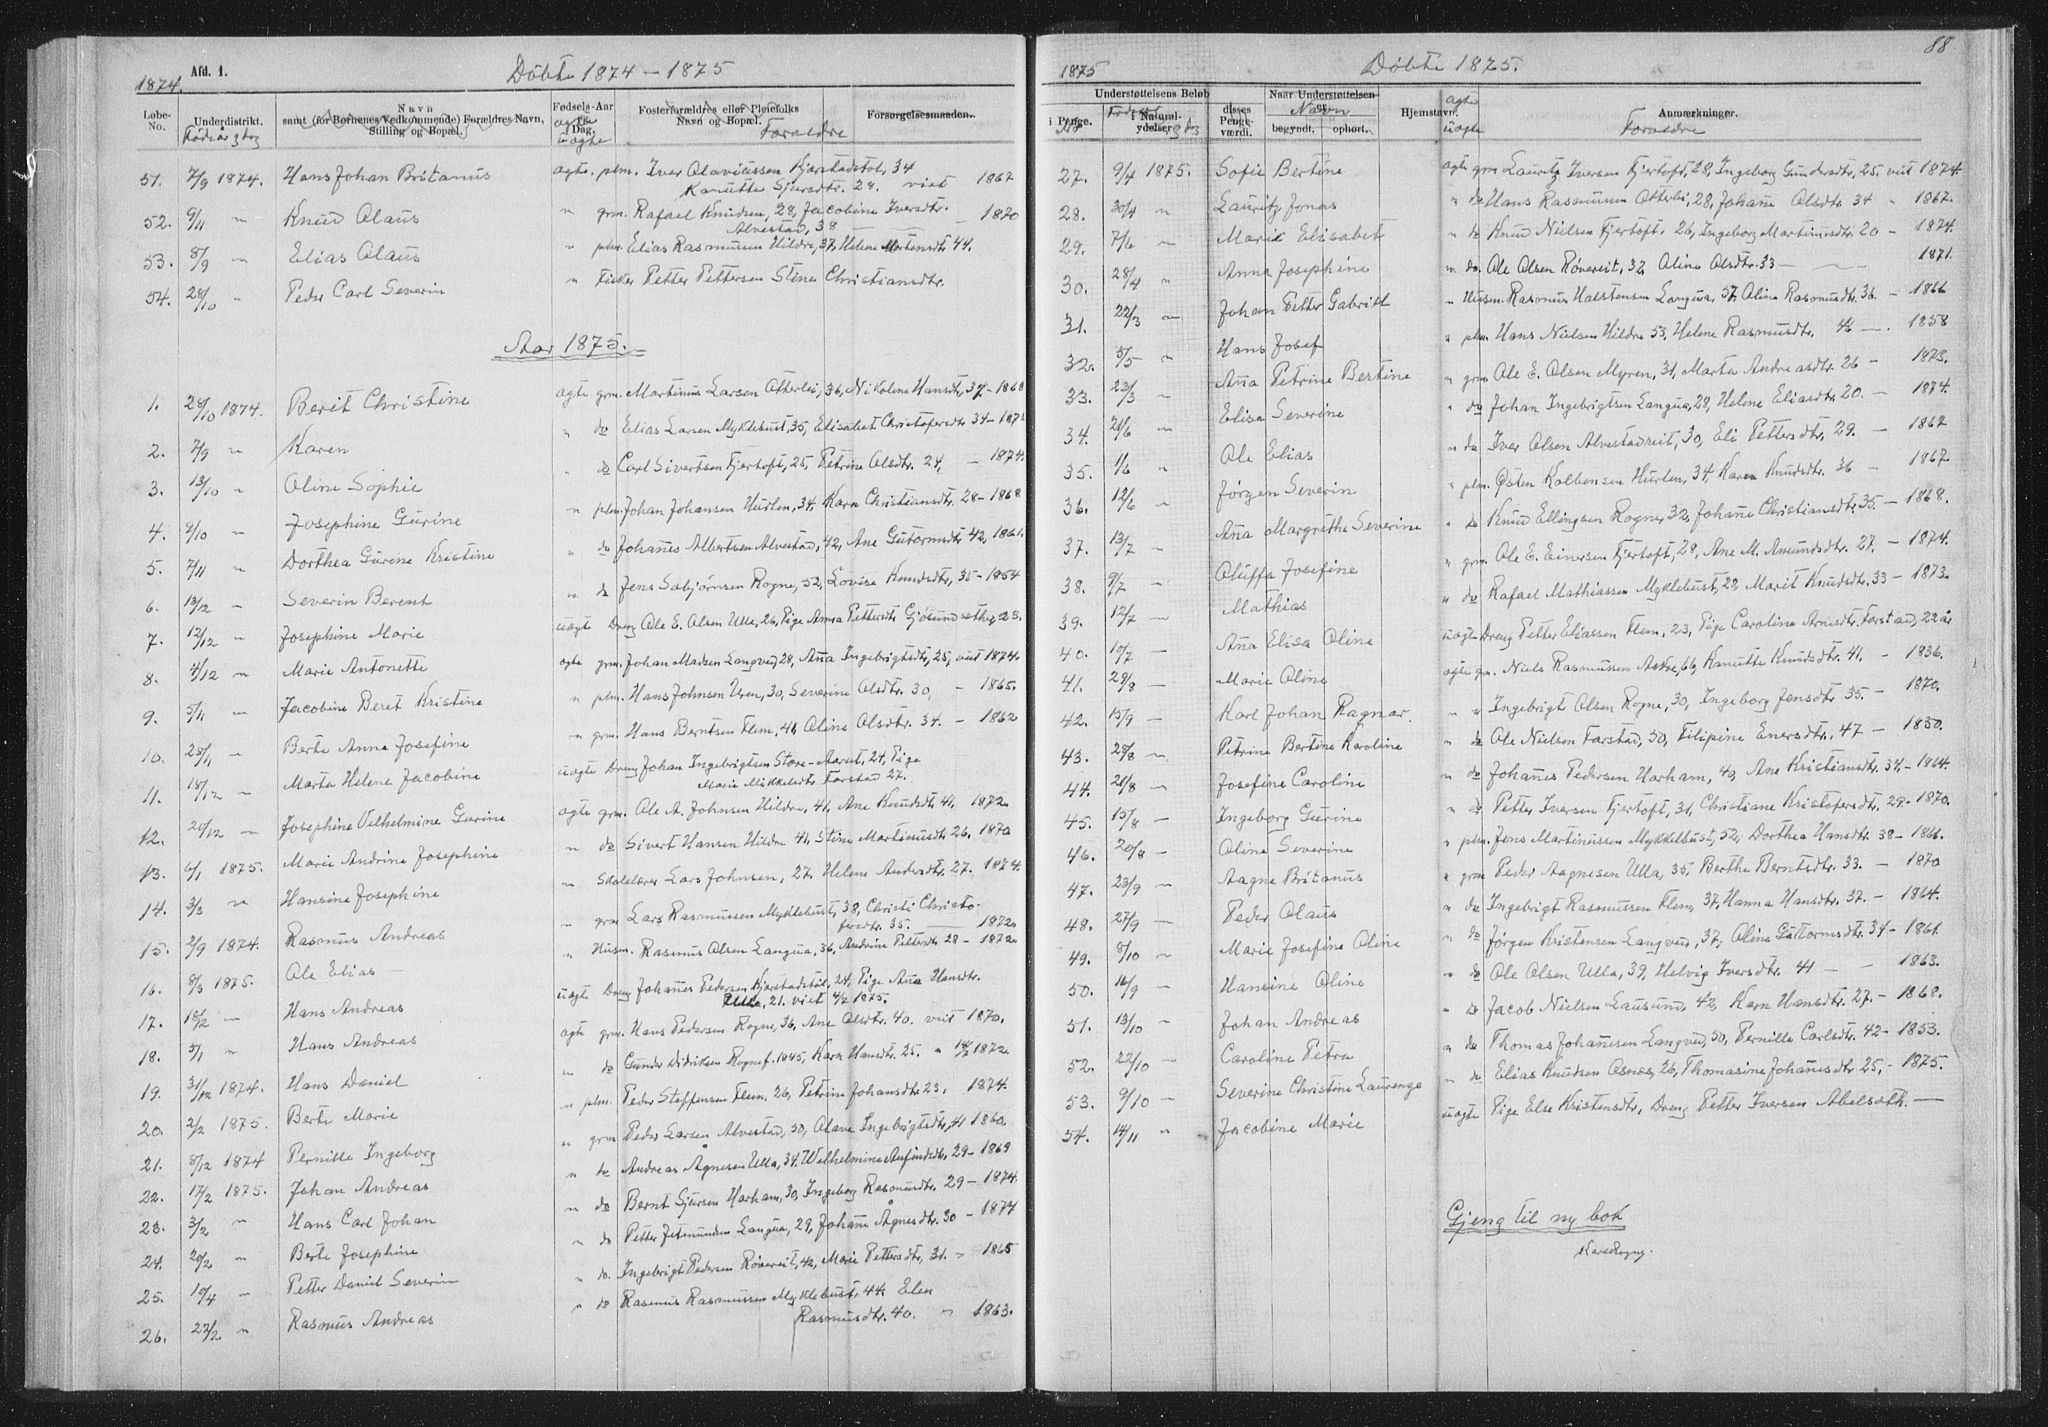 1874. Afd. 1. Döbte 1874 – 1875
Løbe-No. Underdistrikt. Navn samt (for Børnenes Vedkommende) Forældres Navn, Stilling og Bopæl. Fødsels-Aar og Dag. Fosterforældres eller Pleiefolks Navn og Bopæl. Forsorgelsesmaaden.
Fødsår og dag ægte uægte Foreldre
51. 7/9 1874. Hans Johan Britanus ægte. plm. Iver Olaviussen Kjerstadstøl, 34
Kanutte Sjursdtr. 28. viet 1867
52. 9/11 " Knud Olaus " grm. Rafael Knudsen, 28, Jacobine Iversdtr. – 1870
Alvestad, 38
53. 8/9 " Elias Olaus " plm. Elias Rasmussen Hildre, 37, Helene Mortensdtr 44.
54. 28/10 " Peder Carl Severin " Fisker Petter Pettersen Stene Christiansdtr.
Aar 1875.
1. 28/10 1874. Berit Christine ægte grm. Martinus Larsen Otterlei, 36, Nikoline Hansdtr, 37 – 1868
2. 7/9 " Karen " do Elias Larsen Myklebust, 35, Elisabet Christofersdtr 34 – 187
3. 13/10 " Oline Sophie " do Carl Sivertsen Fjertoft, 25, Petrine Olsdtr. 24, – 1874.
4. 9/10 " Josephine Gurine " plm. Johan Johansen Hurlen, 34, Karn Christiansdtr. 28 – 1868
5. 7/11 " Dorthea Gurine Kristine " do Johanes Albertsen Alvestad, 42, Ane Gutormsdtr 42, 1861.
6. 13/12 " Severin Berent " do Jens Sebjørnsen Rogne, 52, Lovise Knudsdtr, 35 – 1854
7. 12/12 " Josephine Marie uægte Dreng Ole E. Olsen Ulla, 26, Pige Anna Pettersdtr Gjøsund 23.
8. 4/12 " Marie Antonette ægte grm. Johan Madsen Langved, 28, Ana Ingebrigtsdtr, 25, viet 1874.
9. 5/11 " Jacobine Beret Kristine " plm. Hans Johnsen Uren, 30, Severine Olsdtr. 30, – 1865.
10. 25/11 " Berte Anna Josefine " grm. Hans Berntsen Flem, 41, Oline Olsdtr. 34. – 1862
11. 18/12 " Marta Helene Jacobine uægte Dreng Johan Ingebrigtsen Store-Aarset, 24, Pige
Marie Mikkelsdtr Farstad 27.
12. 20/12 " Josephine Vilhelmine Gurine ægte grm. Ole A. Johnsen Hildre, 41, Ane Knudsdtr 41, 1872
13. 6/1 1875. Marie Andrine Josephine " do Sivert Hansen Hildre 41, Stine Martinusdtr 26. 1870
14. 3/3 " Hansine Josephine " Skolelærer Lars Johnsen, 27, Helene Andersdtr. 27. 1874.
15. 2/9 1874. Rasmus Andreas " grm Lars Rasmussen Myklebust, 38, Christi Christo-
fersdtr. 35. 1872
16. 8/3 1875. Ole Elias – " Husm. Rasmus Olsen Langua, 36, Andrine Pettersdtr 28 – 1872
17. 18/2 – Hans Andreas uægte Dreng Johanes Pedersen Kjerstadstøl, 24, Pige Ana Hansdtr.
Ulla, 21. viet 4/2 1875.
18. 5/1 " Hans Andreas ægte grm. Hans Pedersen Rogne, 36, Ane Olsdtr. 40. viet 1870.
19. 31/12 1874. Hans Daniel " do Gunder Didriksen Rogne f. 1845, Karn Hansdtr. 25. " 1872.
20. 2/2 1875. Berte Marie " plm. Peder Steffensen Flem, 26, Petrine Johansdtr 23, 1874.
21. 8/12 1874 Pernille Ingeborg " grm Peder Larsen Alvestad, 50, Olave Ingebrigtsdtr, 41 1860.
22. 17/2 1875. Johan Andreas " do Andreas Agnesen Ulla, 34. Wilhelmine Anfindsdtr. 29 – 1869
23. 3/2 " Hans Carl Johan " do Bernt Sjursen Harham, 30, Ingeborg Rasmusdtr. 29 – 1874.
24. 20/2 – Berte Josephine " do Petter Jetmundsen Langua, 29, Johane Ågnesdtr. 30 – 1874
25. 10/4 " Petter Daniel Severin " do. Ingebrigt Pedersen Røvereit, 42, Marie Pettersdtr, 31. – 1865
26. 27/2 " Rasmus Andreas " do Rasmus Rasmussen Myklebust, 44, Elen
Rasmusdtr. 40. " 1863.
1875 Döbte 1875. 88
Understøttelsens Beløb Naar Understøttelsen
i Penge. i Natural-ydelser disses Penge-værdi. begyndt. ophørt. Hjemstavn. Anmærkninger.
No Fødselsår og dag Navn ægte uægte Foreldre
27. 9/4 1875. Sofie Bertine ægte grm Lauritz Iversen Fjertoft, 28, Ingeborg Gundersdtr, 25, viet 1874.
28. 30/4 " Lauritz Jonas " do Hans Rasmussen Otterlei, 28, Johane Olsdtr 34 " 1867.
29. 7/6 – Marie Elisabet " do Knud Nielsen Fjertoft, 26, Ingeborg Martinusdtr. 20 – 1874.
30. 28/4 " Anna Josephine " do. Ole Olsen Røvereit, 32, Oline Olsdtr. 33 – – 1871.
31. 22/3 – Johan Petter Gabriel " Husm. Rasmus Halstensen Langua, 57, Oline Rasmusdtr. 36. – 1866
32. 5/5 " Hans Josef " plm. Hans Nielsen Hildre 53, Helene Rasmusdtr. 46 – 1858
33. 23/3 – Ana Petrine Bertine " grm. Ole E. Olsen Myren, 31, Marta Andreasdtr. 26 – 1873.
34. 21/6 " Elisa Severine " do Johan Ingebrigtsen Langua, 28, Helene Eliasdtr. 20. – 1874.
35. 1/6 " Ole Elias " do Iver Olsen Alvestadreit, 30, Eli Pettersdtr. 29. – 1867
36. 12/6 " Jørgen Severin " plm. Østen Kolbensen Hurlen, 34, Karen Knudsdtr. 36 – 1867.
37. 13/7 – Ana Margrethe Severine " do Knud Ellingsen Rogne, 32, Johane Christiansdtr. 35 – 1868.
38. 9/7 – Oluffa Josefine " grm. Ole E. Einersen Fjertoft, 28, Ane M. Amundsdtr. 27. – 1874.
39. 12/7 – Mathias " do Rafael Mathiassen Myklebust, 28, Marit Knudsdtr. 33 – 1873.
40. 10/7 – Ana Elisa Oline uægte Dreng Petter Eliassen Flem, 23, Pige Caroline Arnesdtr. Farstad, 22 år
41. 29/8 – Marie Oline ægte grm. Niels Rasmussen Aske, 66, Kanutte Knudsdtr. 41. – 1836.
42. 15/9 – Karl Johan Ragnar. " " Ingebrigt Olsen Rogne, 30, Ingeborg Jensdtr. 35 – 1870.
43. 28/8 – Petrine Bertine Karoline " do Ole Nielsen Farstad, 50, Filipine Enersdtr. 47 – 1850.
44. 26/8 – Josefine Caroline " do Johanes Pedersen Harham, 40, Ane Kristiansdtr. 34, – 1864.
45. 15/8 – Ingeborg Gurine " do Petter Iversen Fjertoft, 31, Christiane Kristofersdtr. 29 – 1870.
46. 20/8 – Oline Severine " plm. Jens Martinussen Mykkelbust, 52, Dorthea Hansdtr. 38 – 1861.
47. 23/9 – Aagne Britanus " grm Peder Aagnesen Ulla, 35, Berthe Berntsdtr. 33. – 1870
48. 27/9 – Peder Olaus " do Ingebrigt Rasmussen Flem, 37, Hanna Hansdtr. 37. – 1864.
49. 8/10 – Marie Josefine Oline " do Jørgen Kristensen Langved, 37, Oline Guttormsdtr. 34 – 1861.
50. 16/9 – Hansine Oline " do Ole Olsen Ulla, 39, Helvig Iversdtr. 41 – – 1863.
51. 13/10 – Johan Andreas " do Jacob Nielsen Lausund, 42, Karn Hansdtr. 27. – 1868.
52. 22/10 – Caroline Petra " do Thomas Johanesen Langved, 50, Pernille Carlsdtr. 42 – 1853.
53. 9/10 – Severine Christine Laurenze " do Elias Knudsen Osnes, 26, Thomasine Johanesdtr 25, – 1875.
54. 14/11 " Jacobine Marie uægte Pige Else Kristensdtr, Dreng Petter Iversen Abelseth. –
Gjeng til ny bok
Karl Rogne.